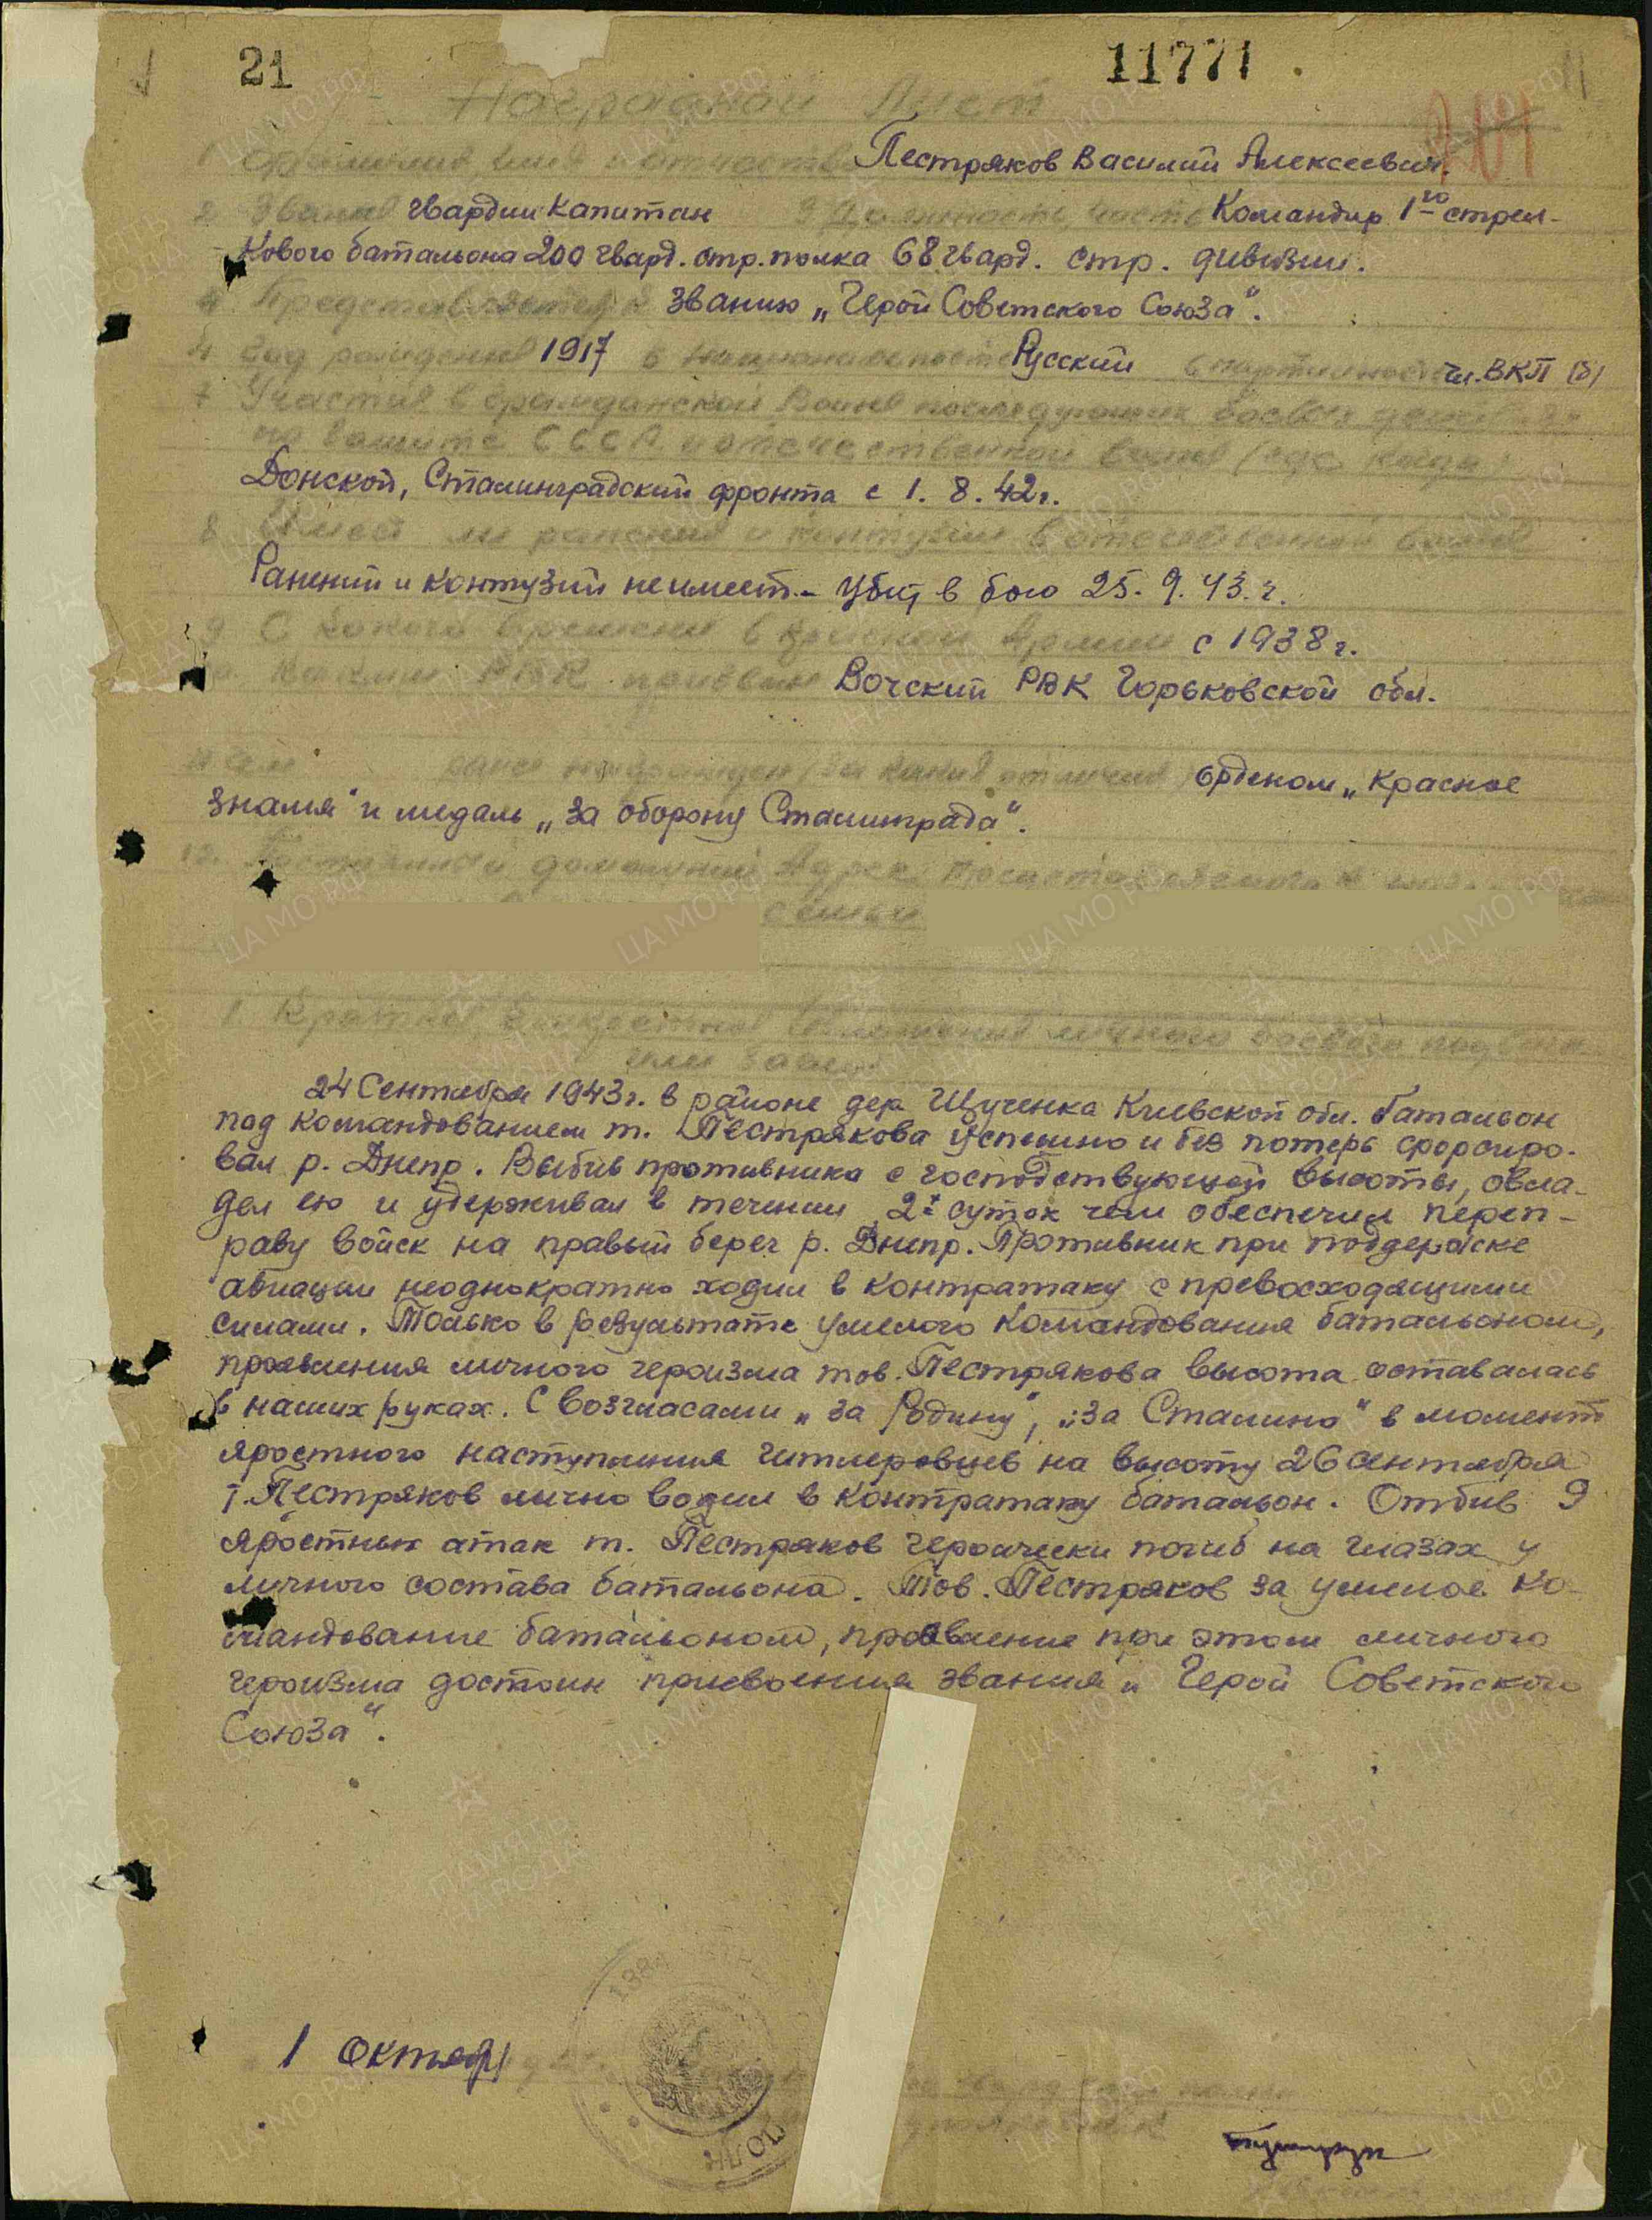 21 11771
Наградной Лист
1 Фамилия, имя и отчество Пестряков Василий Алексеевич.
2 Звание гвардии капитан 3 Должность, часть Командир 1го стрел-
кового батальона 200 гвард. стр. полка 68 гвард. стр. дивизии.
4 Представляется к званию „Герой Советского Союза“.
5 Год рождения 1917 6 Национальность Русский 6 партийность чл. ВКП (б)
7 Участие в гражданской войне последующих боевых действиях
по защите СССР и отечественной войне (где, когда)
Донской, Сталинградский фронта с 1. 8. 42г.
8 Имеет ли ранения и контузии в отечественной войне
Ранений и контузий не имеет.- Убит в бою 25. 9. 43. г.
9 С какого времени в Красной Армии с 1938 г.
10 Каким РВК призван Вочский РВК Горьковской обл.
11 Чем ранее награжден, за какие отличия Орденом „Красное
Знамя“ и медаль „За оборону Сталинграда“.
12. Постоянный домашний адрес
семьи
1. Краткое, конкретное изложение личного боевого подвига
или заслуг
24 Сентября 1943г. в районе дер. Щученка Киевской обл. батальон
под командованием т. Пестрякова успешно и без потерь форсиро-
вал р. Днепр. Выбив противника с господствующей высоты, овла-
дел ею и удерживал в течении 2х суток чем обеспечил переп-
раву войск на правый берег р. Днепр. Противник при поддержке
авиации неоднократно ходил в контратаку с превосходящими
силами. Только в результате умелого командования батальоном,
проявления личного героизма тов. Пестрякова высота оставалась
в наших руках. С возгласами „за Родину“, „за Сталина“ в момент
яростного наступления гитлеровцев на высоту 26 сентября
т. Пестряков лично водил в контратаку батальон. Отбив 9
яростных атак т. Пестряков героически погиб на глазах у
личного состава батальона. Тов. Пестряков за умелое ко-
мандование батальоном, проявление при этом личного
героизма достоин присвоения звания „Герой Советского
Союза“.
1 Октябр